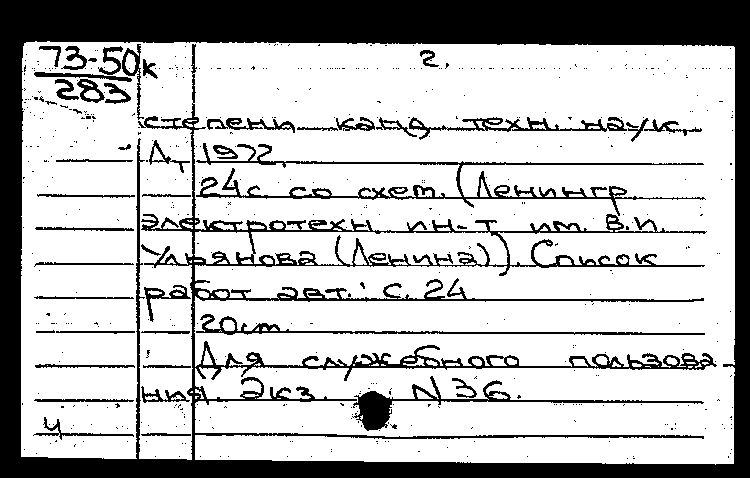 73-50к
283
2.
степени канд техн. наук.
Л, 1972.
24с. со схем. (Ленингр.
электротехн. ин-т им. В.И.
Ульянова (Ленина)). Список
работ авт.: с. 24
20см.
Для служебного пользова-
ния. Экз. N 36.
4